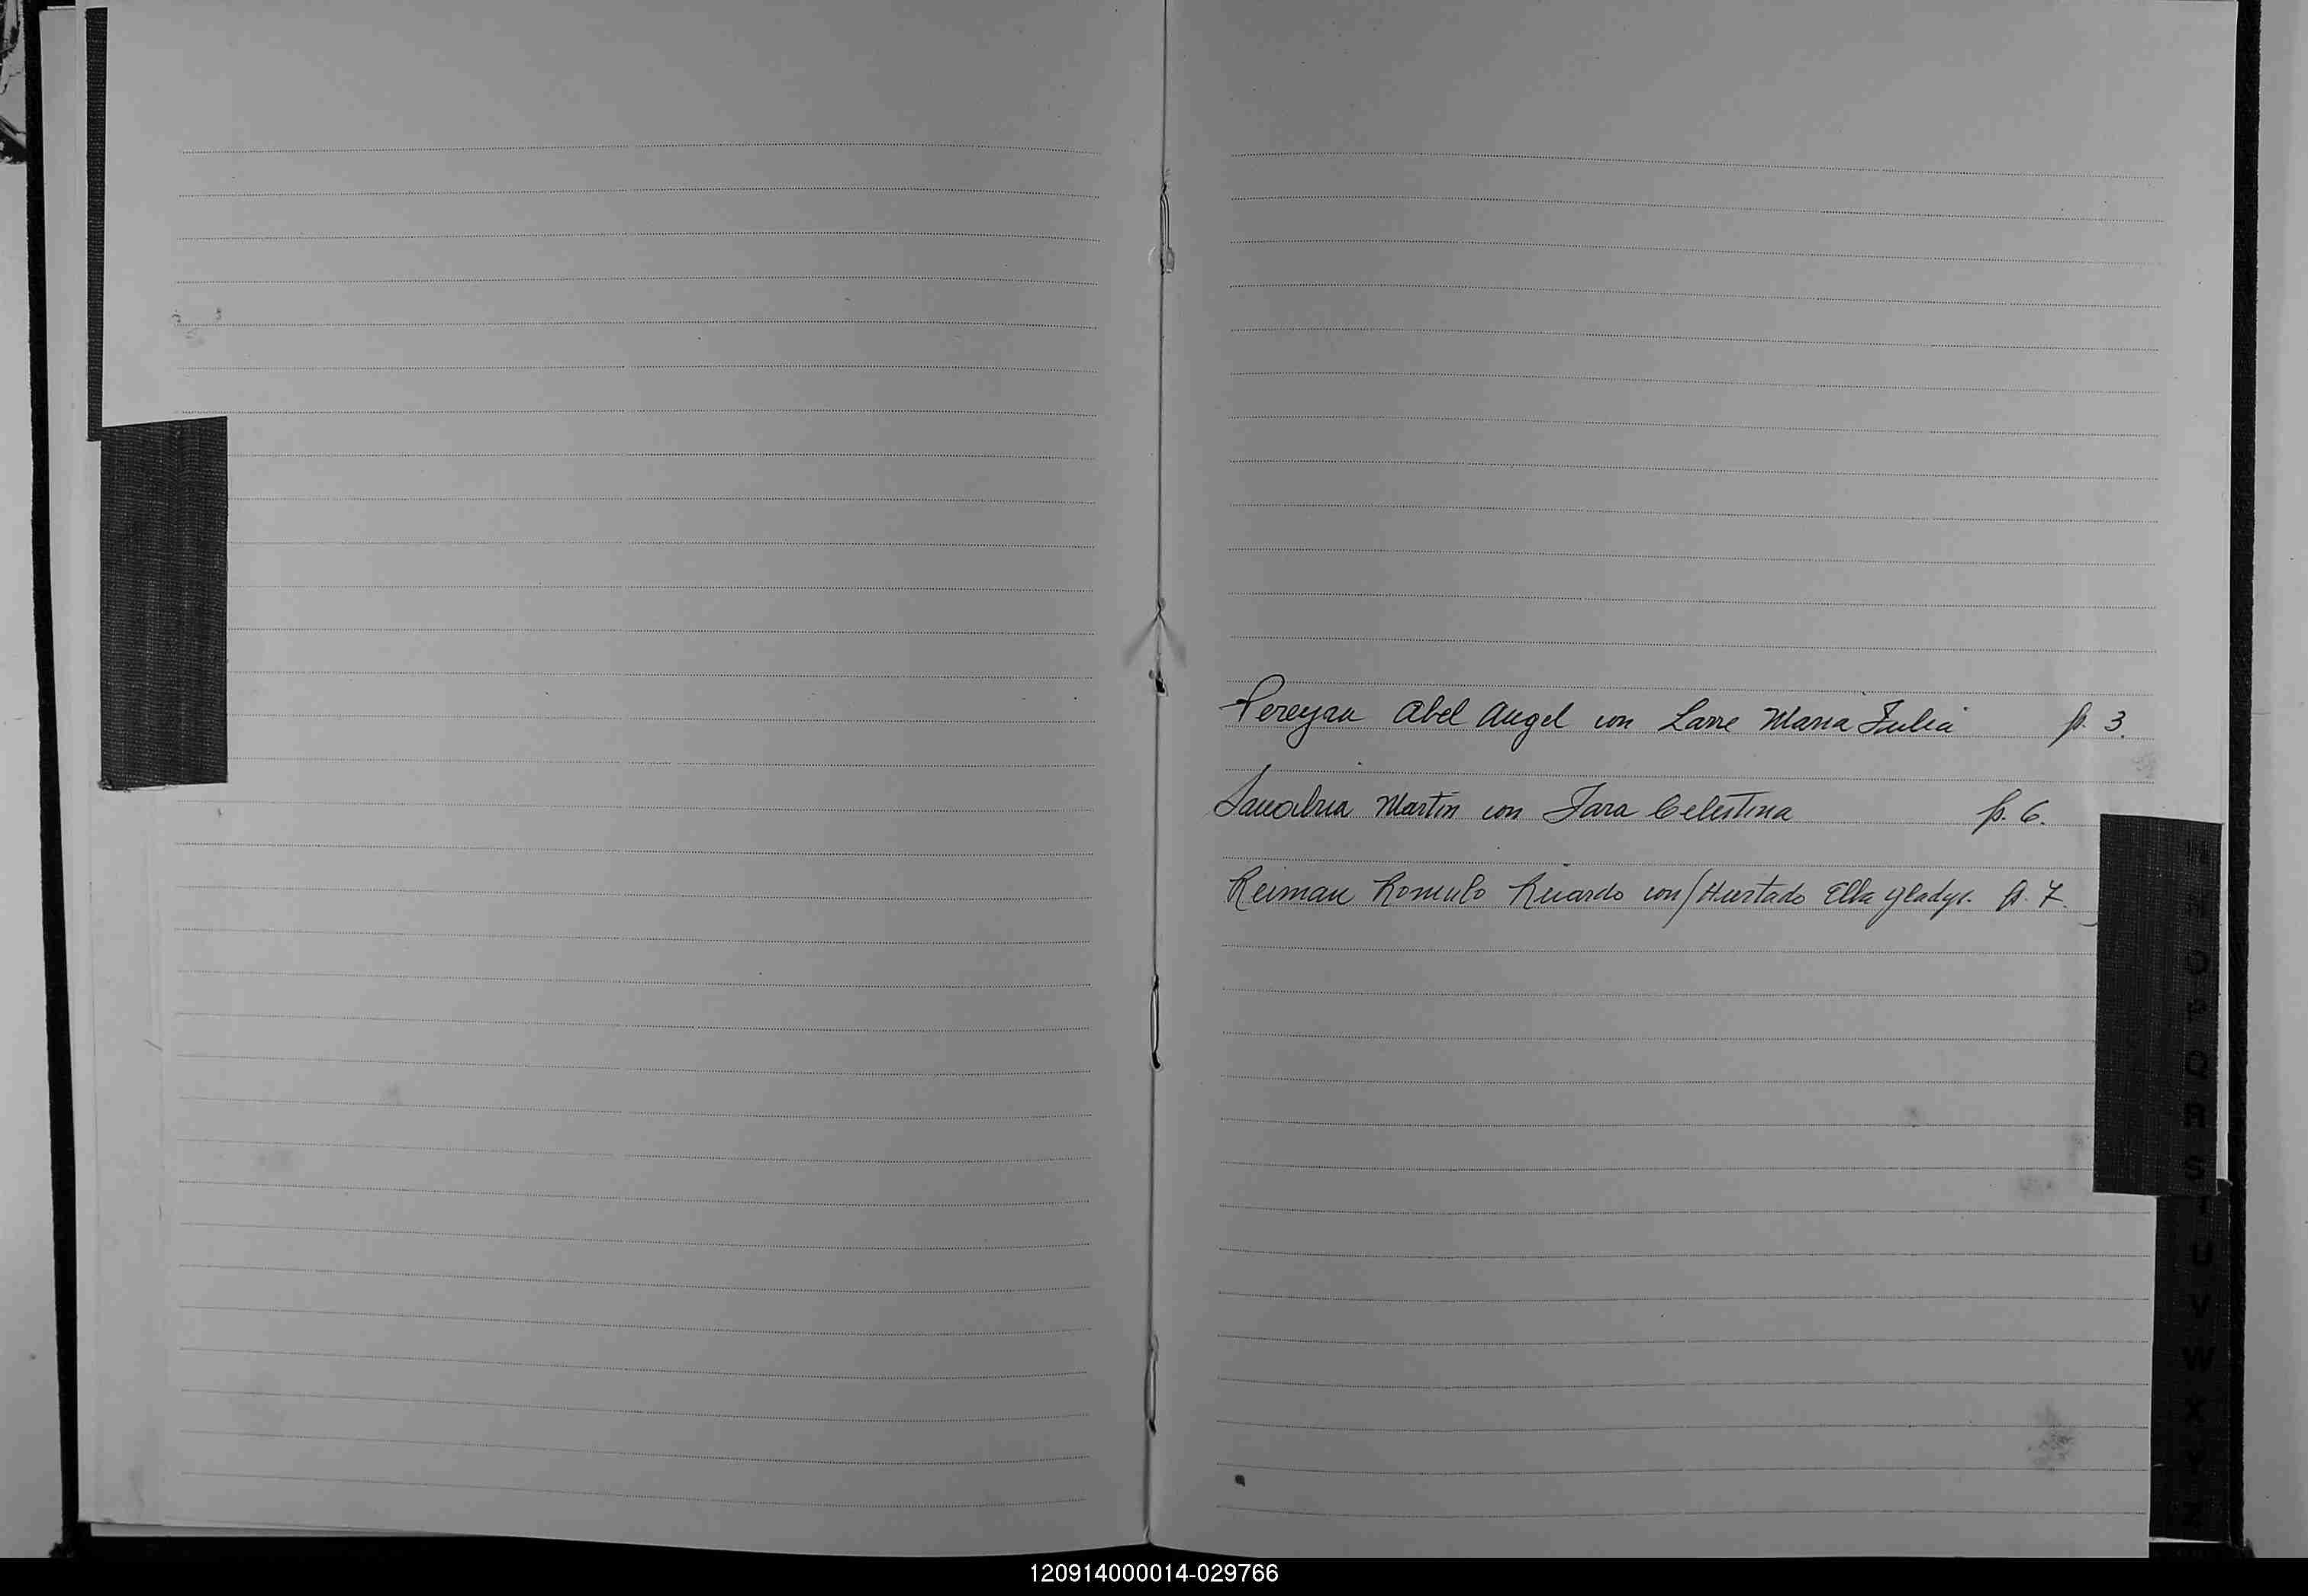 Pereyra Abel Angel con Larre Maria Julia p. 3.
Sanabria Martin con Jara Celestina p. 6.
Reiman Romulo Ricardo con/Hurtado Elba Gladys. p. 7.
M
N
O
P
Q
R
S
T
U
V
W
X
Y
Z
120914000014-029766